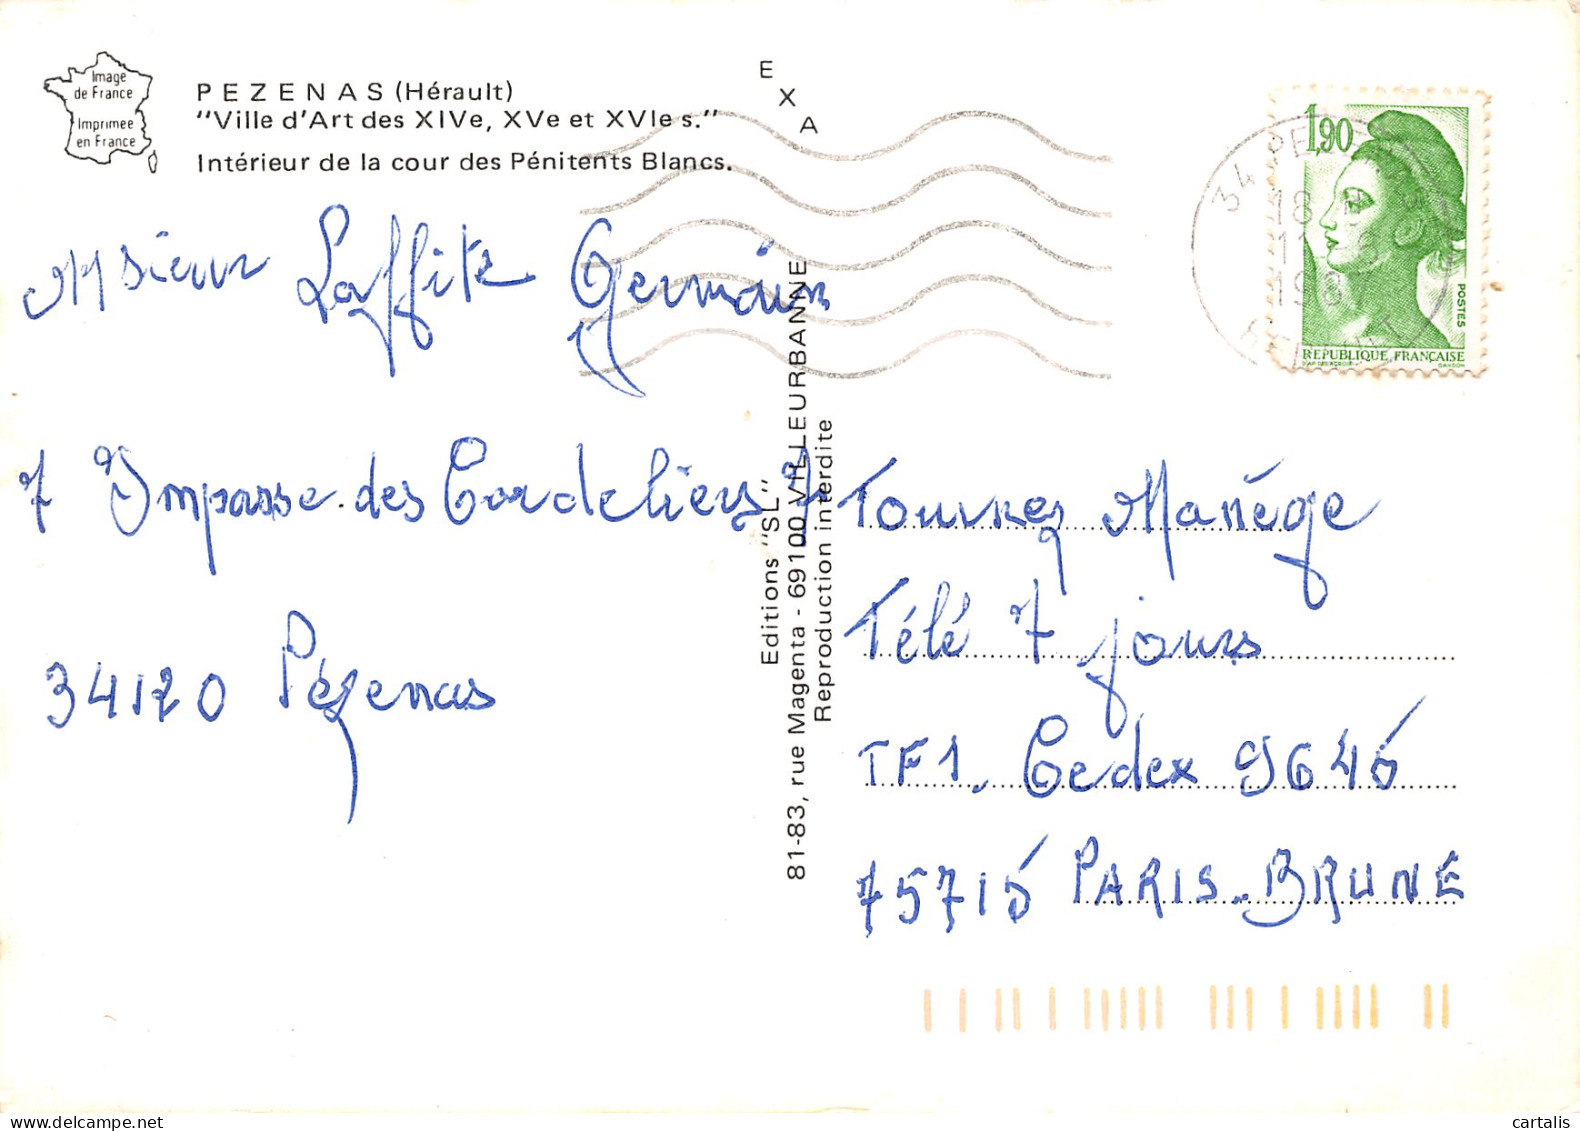 Image
de France
Imprimée
en France
PEZENAS (Hérault)
"Ville d'Art des XIVe, XVe et XVIe s."
Intérieur de la cour des Pénitents Blancs.
EXA
1,90
POSTES
RÉPUBLIQUE FRANÇAISE
34 PE
18
11
198
Msieur Laffite Germain
7 Impasse des Cordeliers
34120 Pézenas
Editions "SL"
81-83, rue Magenta - 69100 VILLEURBANNE
Reproduction interdite
Tournez Manége
Télé 7 jours
TF1. Cedex 9646
75715 PARIS-BRUNE
cartalis